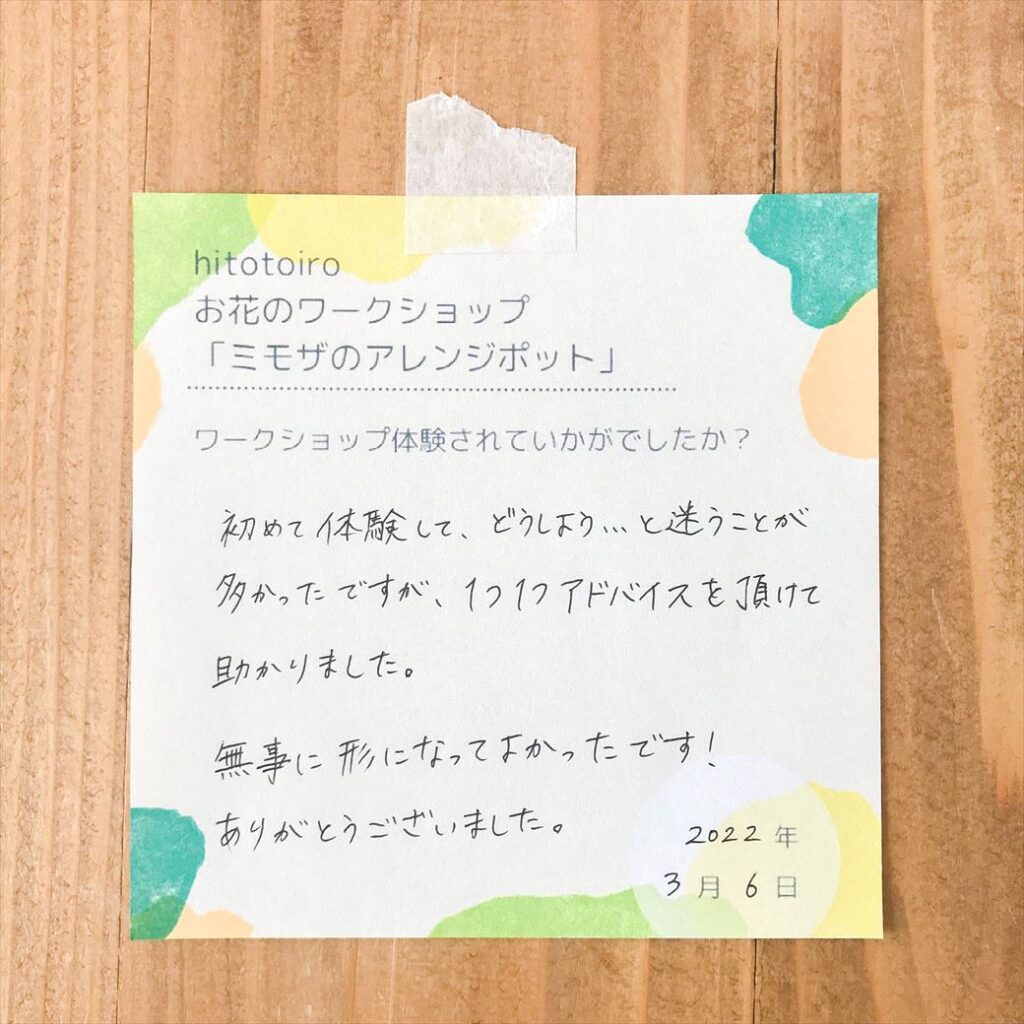 hitotoiro
お花のワークショップ
「ミモザのアレンジポット」
ワークショップ体験されていかがでしたか？
初めて体験して、どうしよう…と迷うことが
多かったですが、1つ1つアドバイスを頂けて
助かりました。
無事に形になってよかったです！
ありがとうございました。
2022年
3月6日